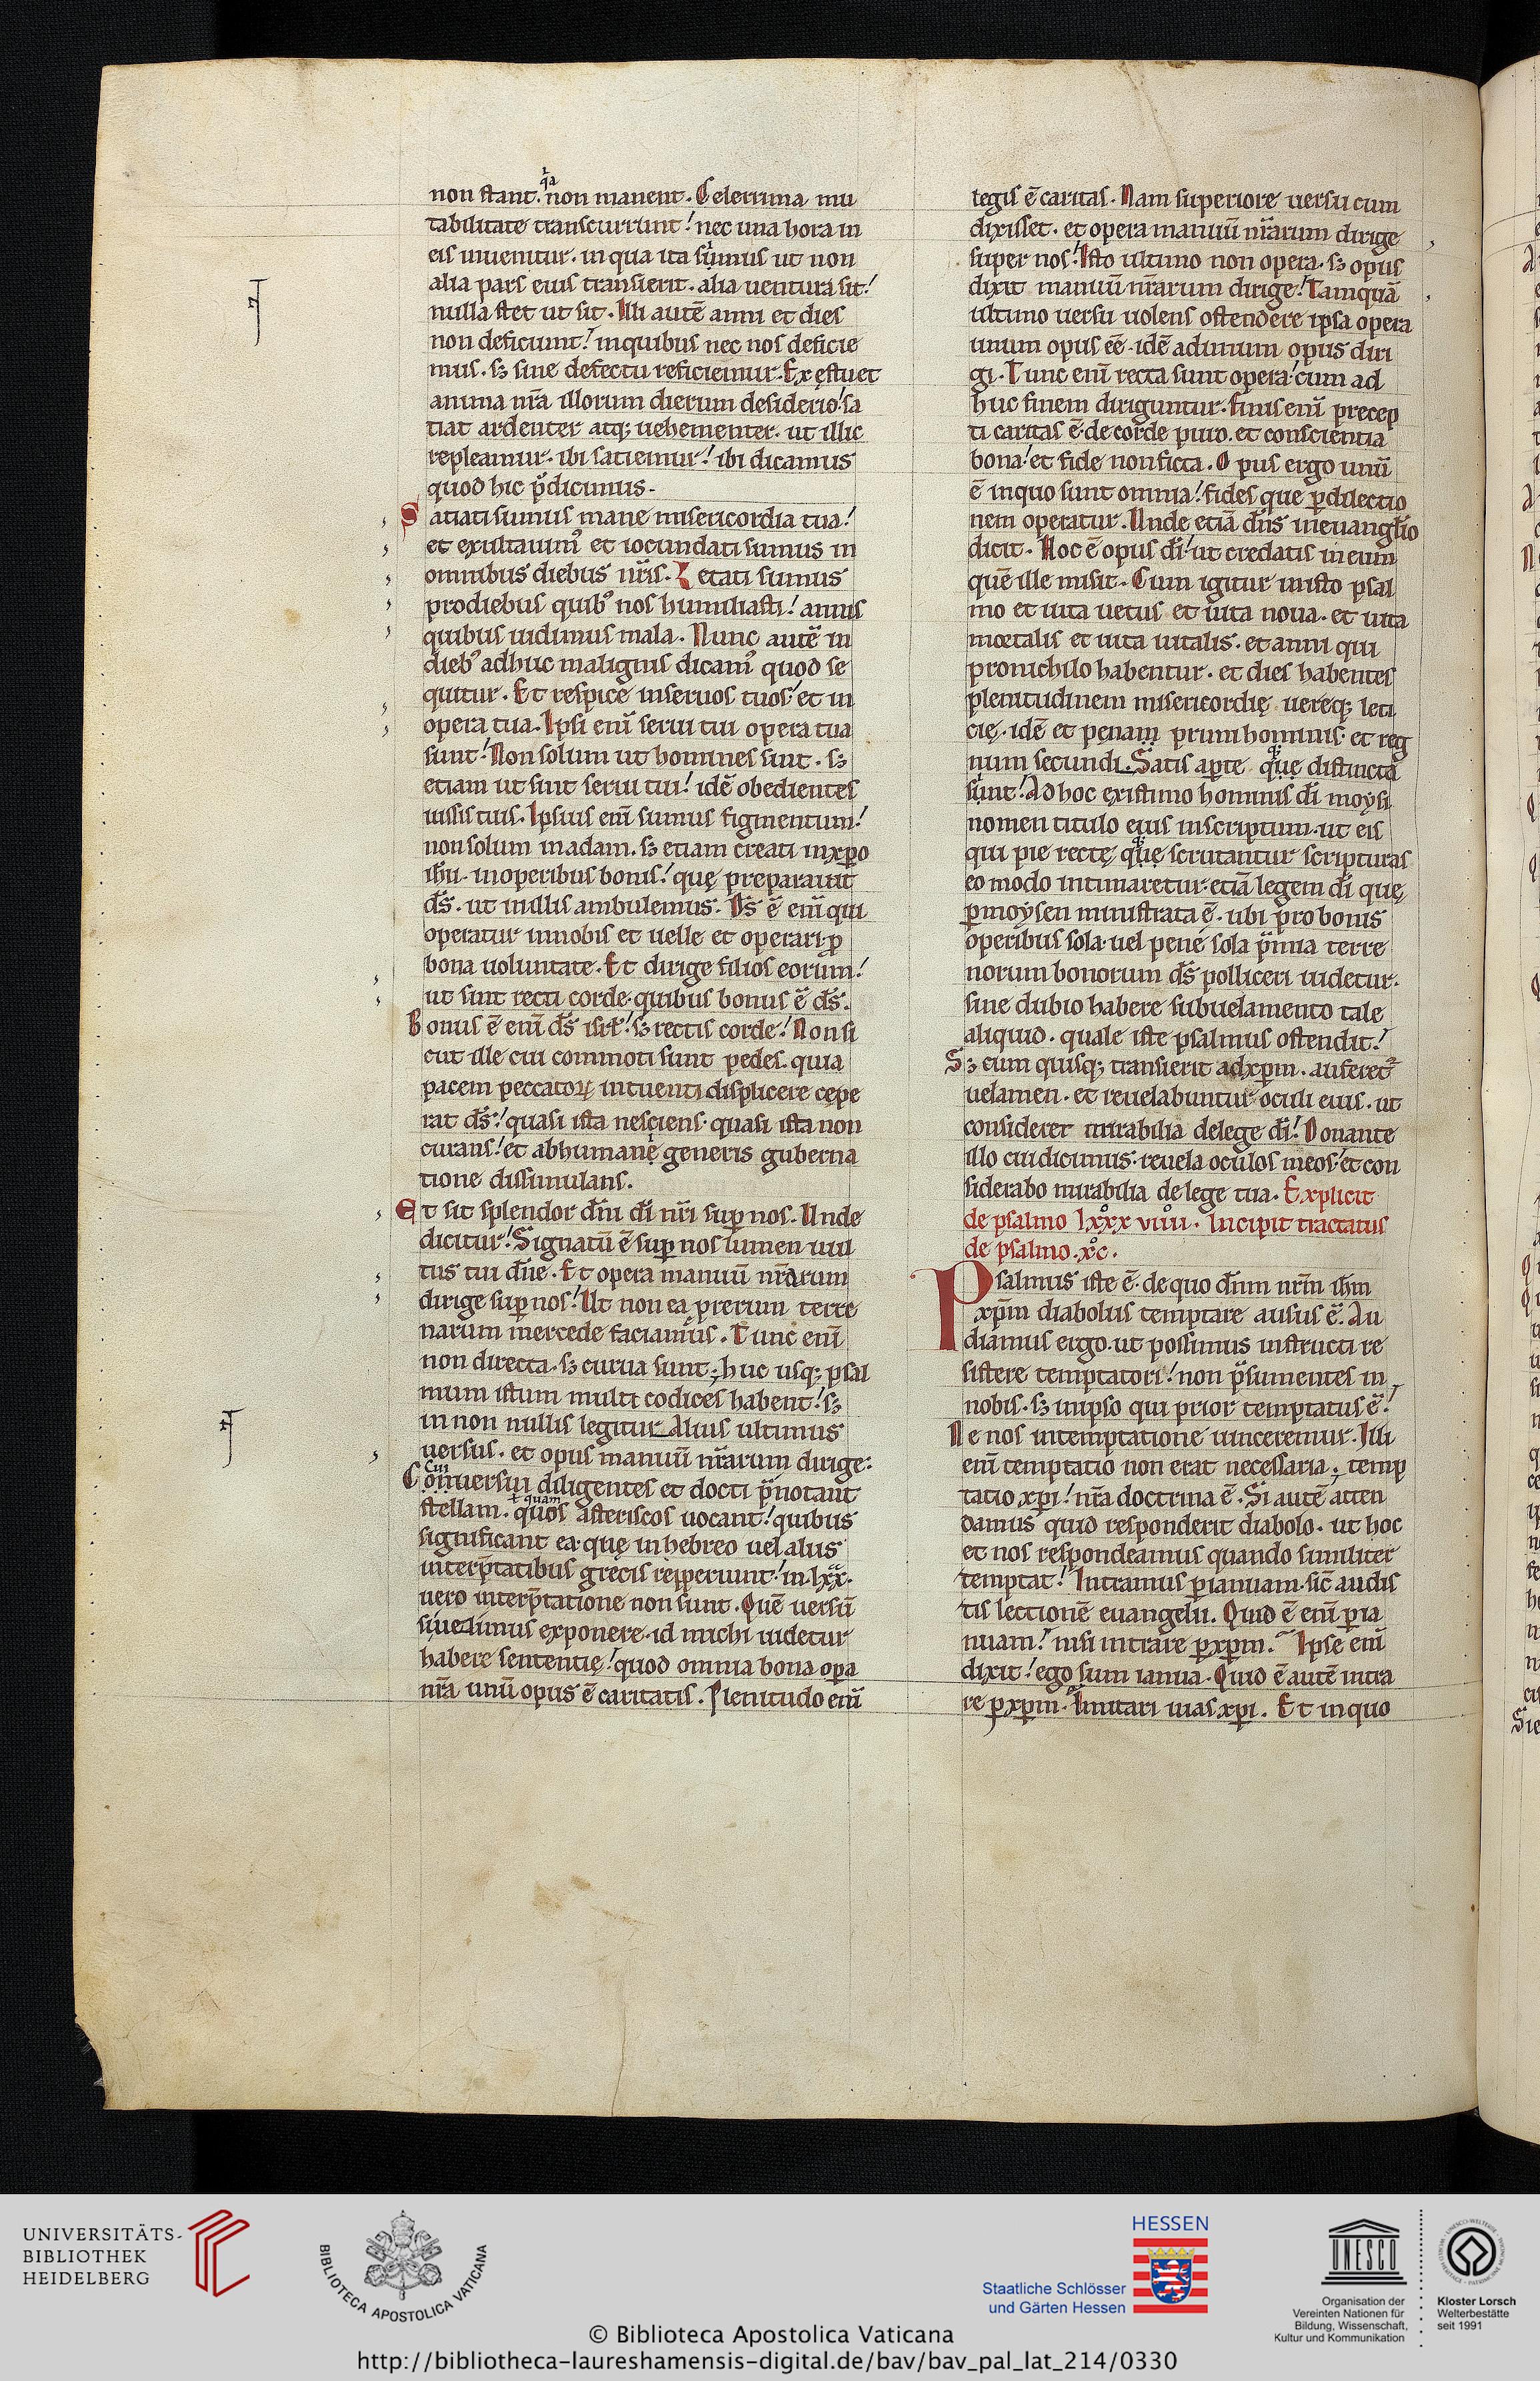 non stant. non manent. Celerrima mu
tabilitate transcurrunt! nec una hora in
eis inuenitur. in qua ita sumus ut non
alia pars eius transierit. alia uentura sit!
nulla stet ut sit. Illi autē anni et dies
non deficiunt! inquibus nec nos deficie
mus. sꝫ sine defectu reficiemur. Ex ęstuet
anima nr̄a illorum dierum desiderio! sa
tiat ardenter atq; uehementer. ut illic
repleamur. ibi satiemur! ibi dicamus
quod hic p̄dicimus.
Satiati sumus mane misericordia tua!
et exultauim᾿ et iocundati sumus in
omnibus diebus nr̄is. Letati sumus
prodiebus quib᾿ nos humiliasti! annis
quibus uidimus mala. Nunc autē in
dieb᾿ adhuc malignis dicam᾿ quod se
quitur. Et respice inseruos tuos! et in
opera tua. Ipsi enī serui tui opera tua
sunt! Non solum ut homines sint. sꝫ
etiam ut sint serui tui! idē obedientes
iussis tuis. Ipsius enī sumus figmentum!
non solum inadam. sꝫ etiam creati inxp̄o
ih̄u. inoperibus bonis! quę preparauit
d̄s. ut inillis ambulemus. D̄s ē enī qui
operatur innobis et uelle et operari ꝓ
bona uoluntate. Et dirige filios eorum!
ut sint recti corde. quibus bonus ē d̄s.
Bonus ē enī d̄s isrł! sꝫ rectis corde! Non si
cut ille cui commoti sunt pedes. quia
pacem peccatoꝝ intuenti displicere cępe
rat d̄s! quasi ista nesciens. quasi ista non
curans! et abhumanę generis guberna
tione dissimulans.
Et sit splendor d̄ni d̄i nr̄i suꝑ nos. Unde
dicitur! Signatū ē suꝑ nos lumen uul
tus tui d̄ne. Et opera manuū nr̄arum
dirige suꝑ nos! Ut non ea prerum terre
narum mercede faciamus. Tunc enī
non directa. sꝫ curua sunt; huc usq; psal
mum istum multi codices habent! sꝫ
in non nullis legitur alius ultimus
uersus. et opus manuū nr̄arum dirige:
Cui
Conuersui diligentes et docti p̄notant
ł quam
stellam. quos asteriscos uocant! quibus
significant ea. quę inhebreo uel aliis
interp̄tatibus grecis repperiunt! in. lxx.
uero interp̄tatione non sunt. Quē uersū
si uelimus exponere. id michi uidetur
habere sententię! quod omnia bona oꝑa
nr̄a unū opus ē caritatis. Plenitudo enī
legis ē caritas. Nam superiore uersu cum
dixisset. et opera manuū nr̄arum dirige
super nos! Isto ultimo non opera. sꝫ opus
dixit manuū nr̄arum dirige! Tamquā
ultimo uersu uolens ostendere ipsa opera
unum opus eē. idē adunum opus diri
gi. Tunc enī recta sunt opera! cum ad
huc finem diriguntur. Finis enī precep
ti caritas ē. de corde puro. et conscientia
bona! et fide nonficta. Opus ergo unū
ē inquo sunt omnia! fides que ꝑdilectio
nem operatur. Unde etiā d̄ns ineuanglio
dicit. Hoc ē opus d̄i! ut credatis ineum
quē ille misit. Cum igitur inisto psal
mo et uita uetus et uita noua. et uita
mortalis et uita uitalis. et anni qui
pronichilo habentur. et dies habentes
plenitudinem misericordię uereq; leti
cię. idē et penam primi hominis. et reg
num secundi. Satis aꝑte quę distincta
sunt! Ad hoc existimo hominis d̄i moysi
nomen titulo eius inscriptum. ut eis
qui pie rectę quę scrutantur scripturas
eo modo intimaretur. etiā legem d̄i quę
ꝑmoysen ministrata ē. ubi pro bonis
operibus sola. uel pene sola p̄mia terre
norum bonorum d̄s polliceri uidetur.
sine dubio habere subuelamento tale
aliquid. quale iste psalmus ostendit!
Sꝫ cum quisq; transierit adxp̄m. auferet᾿
uelamen. et reuelabuntur oculi eius. ut
consideret mirabilia delege d̄i! Donante
illo cuidicimus. reuela oculos meos! et con
siderabo mirabilia de lege tua. Explicit
de psalmo lxxx viiii. Incipit tractatus
de psalmo. xc.
Psalmus iste ē. de quo d̄nm nr̄m ih̄m
xp̄m diabolus temptare ausus ē. Au
diamus ergo. ut possimus instructi re
sistere temptatori! non p̄sumentes in
nobis. sꝫ inipso qui prior temptatus ē!
Ne nos intemptatione uinceremur. Illi
enī temptatio non erat necessaria; temp
tatio xp̄i! nr̄a doctrina ē. Si autē atten
damus quid responderit diabolo. ut hoc
et nos respondeamus quando similiter
temptat! Intramus ꝑianuam. sic̄ audis
tis lectionē euangelii. Quid ē enī ꝑia
nuam! nisi intrare ꝑxp̄m. Ipse enī
dixit! ego sum ianua. Quid ē autē intra
re ꝑxp̄m. Imitari uias xp̄i. Et inquo
UNIVERSITÄTS-
BIBLIOTHEK
HEIDELBERG
BIBLIOTECA APOSTOLICA VATICANA
HESSEN
Staatliche Schlösser
und Gärten Hessen
UNESCO
Organisation der
Vereinten Nationen für
Bildung, Wissenschaft,
Kultur und Kommunikation
Kloster Lorsch
Welterbestätte
seit 1991
© Biblioteca Apostolica Vaticana
http://bibliotheca-laureshamensis-digital.de/bav/bav_pal_lat_214/0330